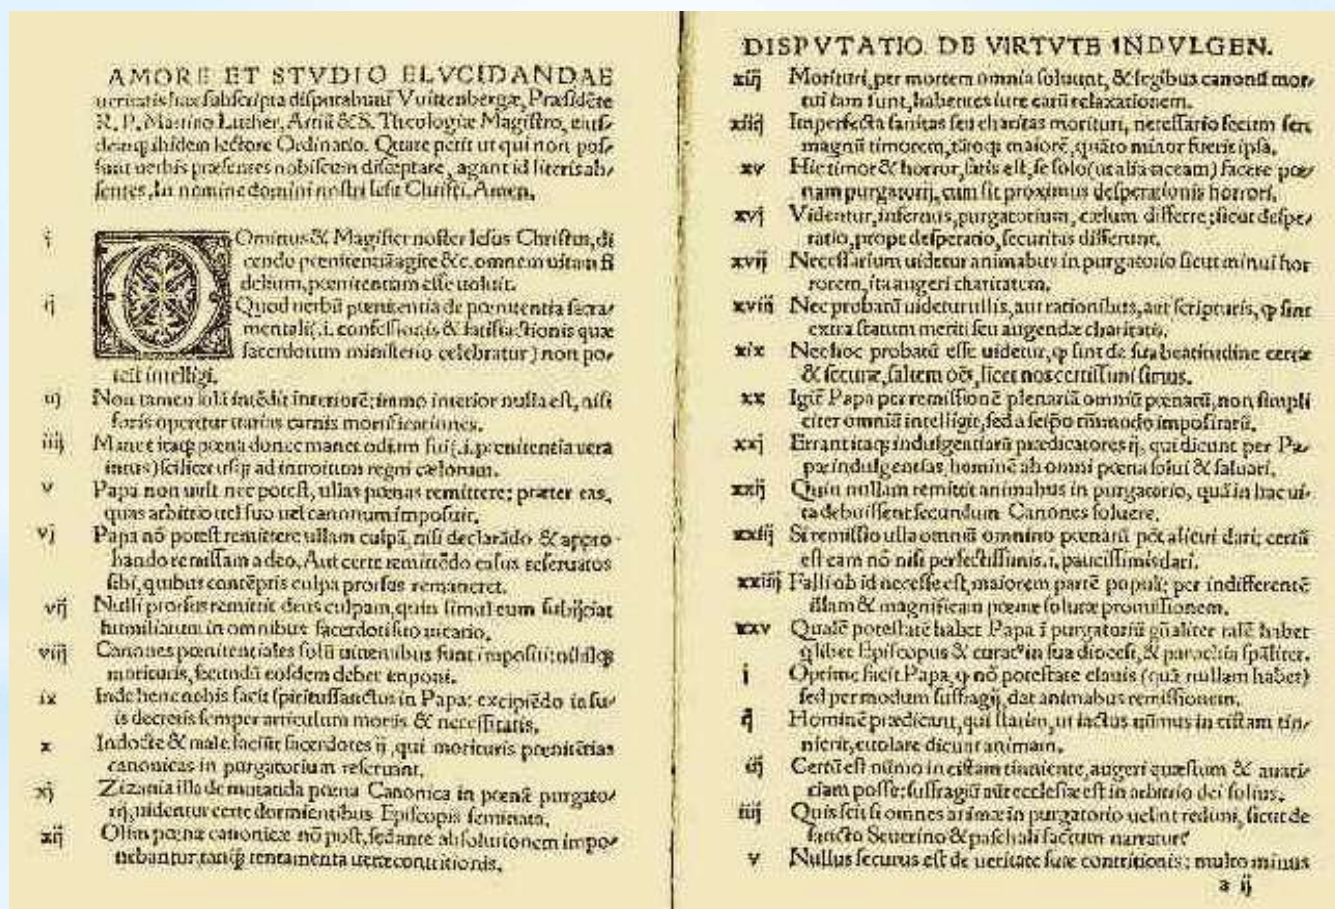 AMORE ET STVDIO ELVCIDANDAE
ueritatis hæc ſubſcripta diſputabunť Vuittenbergæ, Præſidēte
R. P. Martino Luther, Artiū & S. Theologiæ Magiſtro, eiuſ-
demq̃ ibidem lectore Ordinario. Quare petit ut qui non poſ-
ſunt uerbis præſentes nobiſcum diſceptare, agant id literis ab-
ſentes. In nomine domini noſtri Ieſu Chriſti. Amen.
i Ominus & Magiſter noſter Ieſus Chriſtus, di
cendo pœnitentiā agite &c. omnem uitam fi
delium, pœnitentiam eſſe uoluit.
ij Quod uerbū pœnitentia de pœnitentia ſacra-
mentali (.i. confeſſionis & ſatiſfactionis quæ
ſacerdotum miniſterio celebratur) non po-
teſt intelligi.
iij Non tamen ſolā intēdit interiorē: immo interior nulla eſt, niſi
foris operetur uarias carnis mortificationes.
iiij Manet itaq̃ pœna donec manet odium ſui (.i. pœnitentia uera
intus) ſcilicet uſq̃ ad introitum regni cælorum.
v Papa non uult nec poteſt, ullas pœnas remittere: præter eas,
quas arbitrio uel ſuo uel canonum impoſuit.
vj Papa nō poteſt remittere ullam culpā, niſi declarādo & appro-
bando remiſſam a deo. Aut certe remittēdo caſus reſeruatos
ſibi, quibus contēptis culpa prorſus remaneret.
vij Nulli prorſus remittit deus culpam, quin ſimul eum ſubijciat
humiliatum in omnibus ſacerdoti ſuo uicario.
viij Canones pœnitentiales ſolū uiuentibus ſunt impoſiti: nihilq̃
morituris, ſecundū eoſdem debet imponi.
ix Inde bene nobis facit ſpirituſſanctus in Papa: excipiēdo in ſu-
is decretis ſemper articulum mortis & neceſſitatis.
x Indocte & male faciūt ſacerdotes ij, qui morituris pœnitētias
canonicas in purgatorium reſeruant.
xj Zizania illa de mutanda pœna Canonica in pœnā purgato-
rij, uidentur certe dormientibus Epiſcopis ſeminata.
xij Olim pœnæ canonicæ nō poſt, ſed ante abſolutionem impo-
nebantur, tanq̃ tentamenta ueræ contritionis.
DISPVTATIO DE VIRTVTE INDVLGEN.
xiij Morituri, per mortem omnia ſoluunt, & legibus canonū mor-
tui iam ſunt, habentes iure earū relaxationem.
xiiij Imperfecta ſanitas ſeu charitas morituri, neceſſario ſecum fert
magnū timorem, tātoq̃ maiorē, quāto minor fuerit ipſa.
xv Hic timor & horror, ſatis eſt, ſe ſolo (ut alia taceam) facere pœ-
nam purgatorij, cum ſit proximus deſperationis horrori.
xvj Videntur, infernus, purgatorium, cælum differre: ſicut deſpe-
ratio, prope deſperatio, ſecuritas differunt.
xvij Neceſſarium uidetur animabus in purgatorio ſicut minui hor
rorem, ita augeri charitatem.
xviij Nec probatū uidetur ullis, aut rationibus, aut ſcripturis, ꝙ ſint
extra ſtatum meriti ſeu augendæ charitatis.
xix Nec hoc probatū eſſe uidetur, ꝙ ſint de ſua beatitudine certæ
& ſecuræ, ſaltem oēs, licet nos certiſſimi ſimus.
xx Igiť Papa per remiſſionē plenariā omniū pœnarū, non ſimpli
citer omniū intelligit, ſed a ſeipſo tm̄modo impoſitarū.
xxj Errant itaq̃ indulgentiarū prædicatores ij, qui dicunt per Pa-
pæ indulgentias, hominē ab omni pœna ſolui & ſaluari.
xxij Quin nullam remittit animabus in purgatorio, quā in hac ui-
ta debuiſſent ſecundum Canones ſoluere.
xxiij Si remiſſio ulla omniū omnino pœnarū pōt alicui dari: certū
eſt eam nō niſi perfectiſſimis .i. pauciſſimis dari.
xxiiij Falli ob id neceſſe eſt, maiorem partē populi: per indifferentē
illam & magnificam pœnæ ſolutæ promiſſionem.
xxv Qualē poteſtatē habet Papa ī purgatoriū gn̄aliter talē habet
q̄libet Epiſcopus & curat⁹ in ſua dioceſi, & parochia ſpāliter.
i Optime facit Papa, ꝙ nō poteſtate clauis (quā nullam habet)
ſed per modum ſuffragij, dat animabus remiſſionem.
ij Hominē prædicant, qui ſtatim, ut iactus nūmus in ciſtam tin-
nierit, euolare dicunt animam.
iij Certū eſt nūmo in ciſtam tinniente, augeri quæſtum & auari-
ciam poſſe: ſuffragiū aūt eccleſiæ eſt in arbitrio dei ſolius.
iiij Quis ſcit ſi omnes animæ in purgatorio uelint redimi, ſicut de
ſancto Seuerino & paſchali factum narratur
v Nullus ſecurus eſt de ueritate ſuæ contritionis: multo minus
a ij